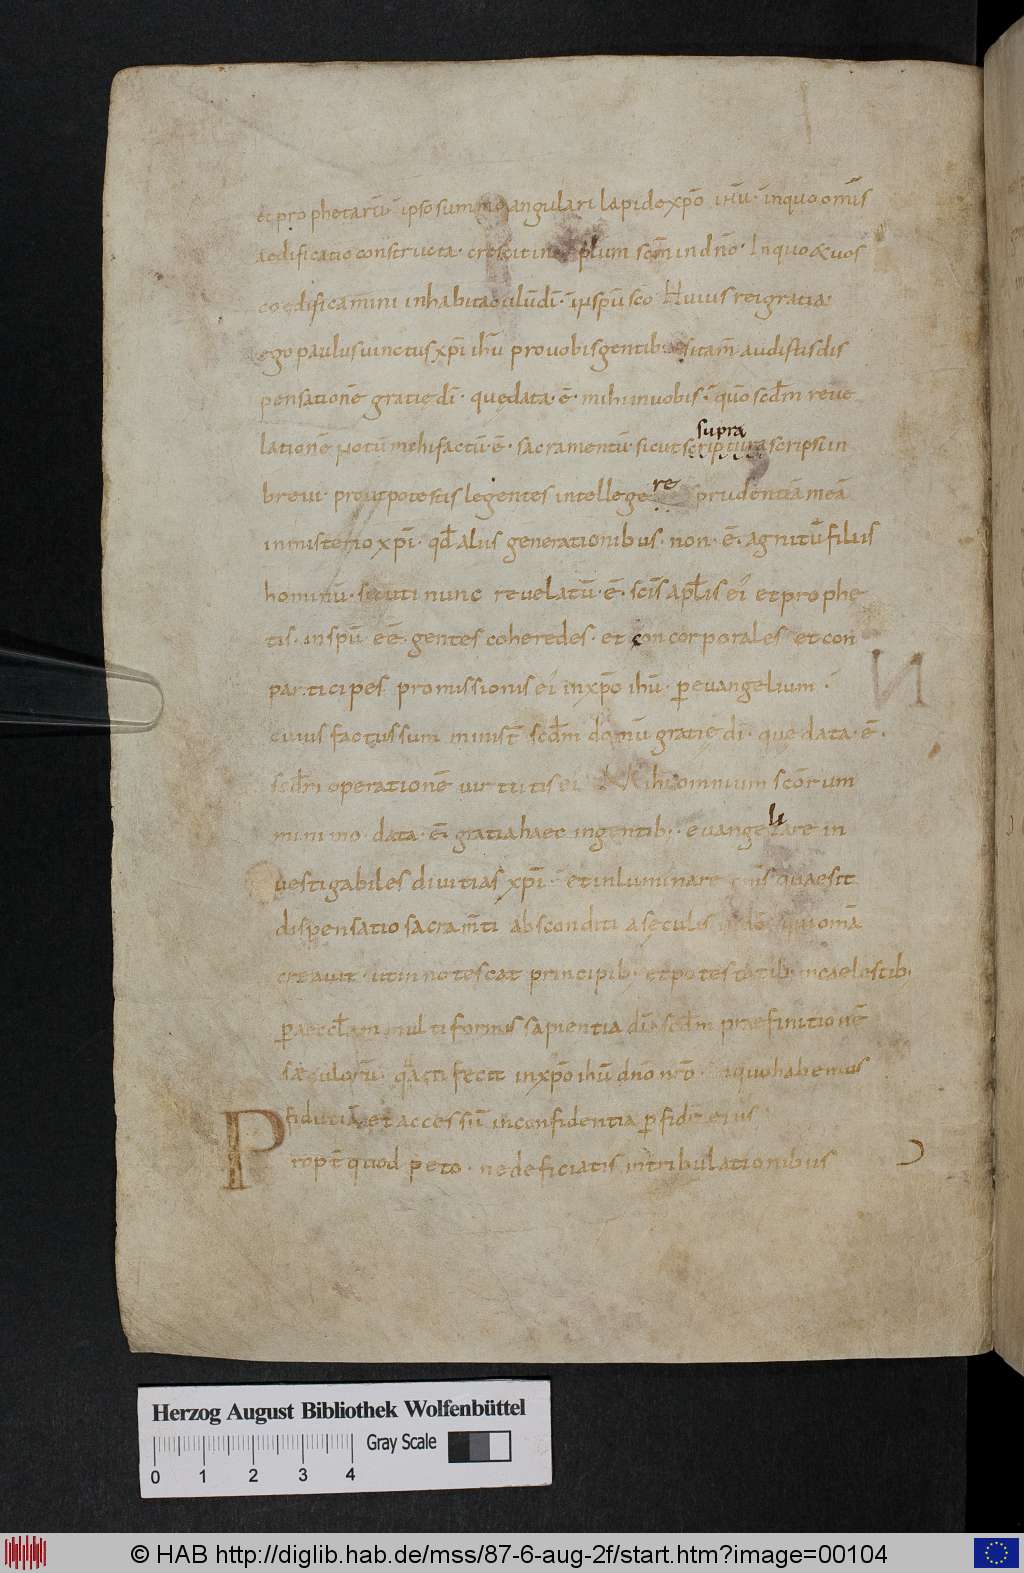 et prophetarū ipso summo angulari lapide xp̄o ih̄u · inquo om̄is
aedificatio constructa · crescit in plum sc̄m in dn̄o · Inquo & uos
coedificamini inhabitaculū dī · in sp̄u sc̄o Huius rei gratia
ego paulus uinctus xp̄i ih̄u prouobis gentib: sitam̄ audistis dis
pensationē gratie dī · quę data · ē · mihi inuobis · qūo scd̄m reue
lationē notū mihi factū · ē · sacramentū sicut scriptura scripsi in
supra
breui · prout potestis legentes intellege re prudentiā meā
inmisterio xp̄i · qd̄ aliis generationibus · non · ē · agnitū filiis
hominū · sicuti nunc reuelatū · ē · sc̄is ap̄lis ei et prophe
tis · in sp̄u eē · gentes coheredes · et concorporales et con
participes promissionis ei in xp̄o ih̄u · p̄euangelium · i
N
cuius factus sum minist̄ scd̄m donū gratię dī · que data · ē ·
scd̄m operationē uirtutis ei Mihi omnium sc̄orum
minimo · data · ē · gratia haec ingentib: · euangelizare in
li
uestigabiles diuitias xp̄i · et inluminare quae sit
dispensatio sacram̄ti absconditi a sęculis in dō qui omā
creauit · ut innotescat principib: et potestatib: in caelestib:
p̄ aeccl̄am multiformis sapientia dī scd̄m praefinitionē
sæculorū · quā fecit in xp̄o ih̄u dn̄o nr̄o · inquo habemus
fiduciā et accessū inconfidentia p̄ fidē eius
Propt̄ quod peto · ne deficiatis in tribulationibus
Herzog August Bibliothek Wolfenbüttel
Gray Scale
0 1 2 3 4
© HAB http://diglib.hab.de/mss/87-6-aug-2f/start.htm?image=00104